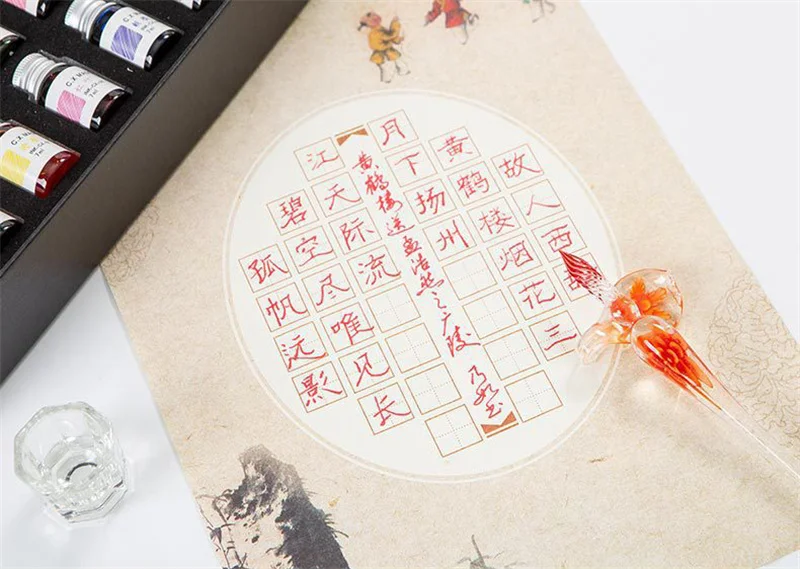 故人西
黄鹤楼烟花三
月下扬州
黄鹤楼送孟浩然之广陵
孤帆远影
碧空尽唯见长
江天际流
7ml
7ml